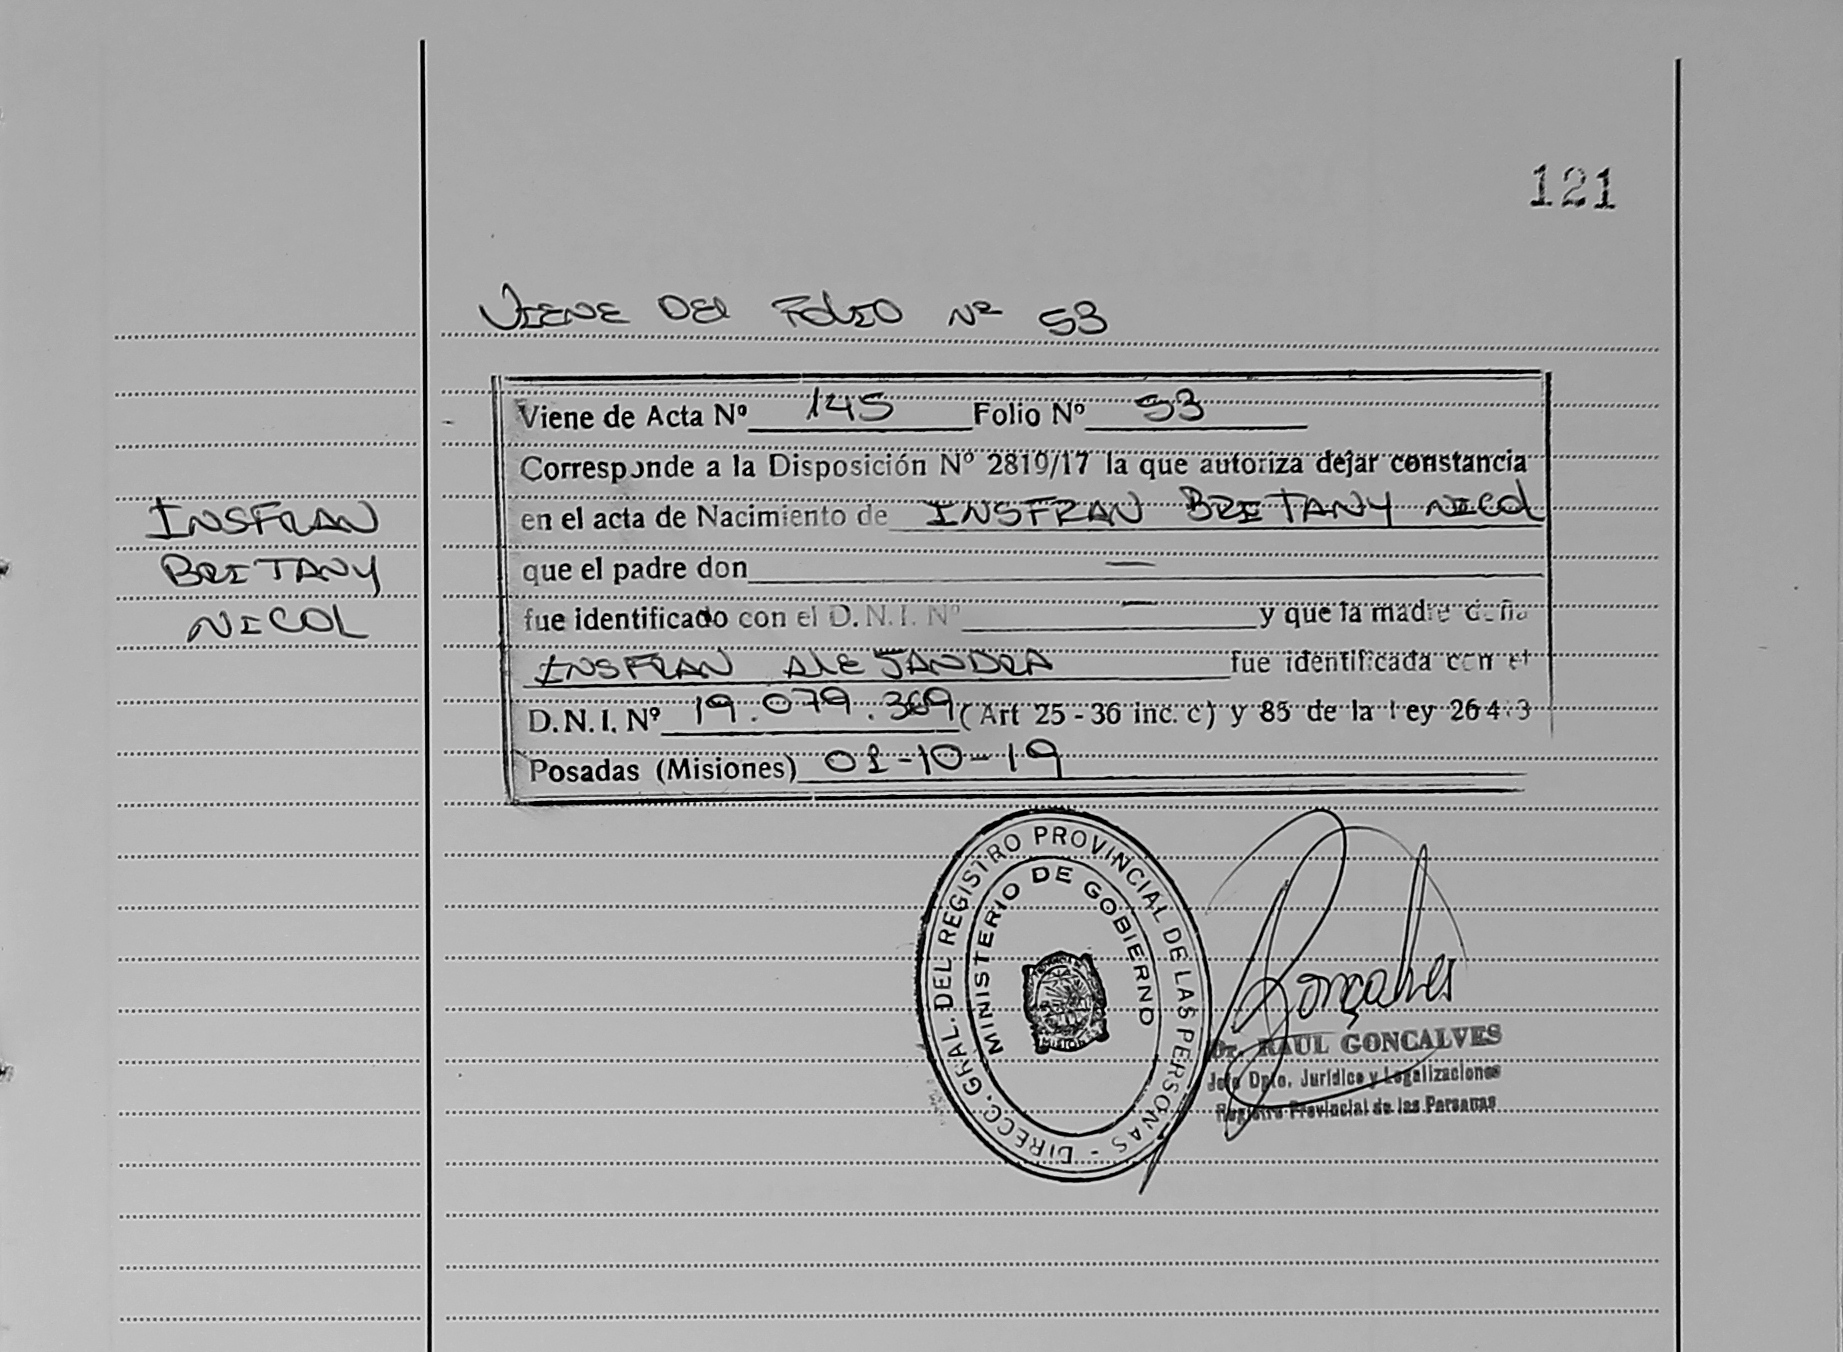 121
VIENE DEL FOLIO Nº 53
Viene de Acta Nº 145 Folio Nº 53
Corresponde a la Disposición Nº 2810/17 la que autoriza dejar constancia
en el acta de Nacimiento de INSFRAN BRITANY NICOL
que el padre don —
fue identificado con el D. N. I. Nº — y que la madre doña
INSFRAN ALEJANDRA fue identificada con el
D.N.I. Nº 19.079.369 (Art 25 - 36 inc. c) y 85 de la ley 26413
Posadas (Misiones) 01-10-19
INSFRAN
BRITANY
NICOL
DIRECC. GRAL. DEL REGISTRO PROVINCIAL DE LAS PERSONAS -
MINISTERIO DE GOBIERNO
Gonçalves
Dr. RAUL GONCALVES
Jefe Dpto. Jurídico y Legalizaciones
Registro Provincial de las Personas